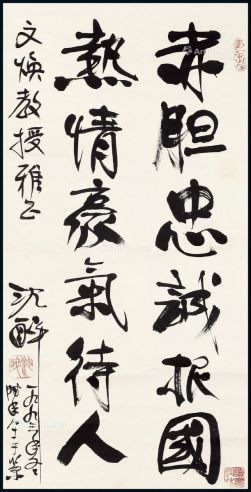 赤胆忠誠报國
熱情豪氣待人
文焕教授雅正
沈醉
一九九二年冬